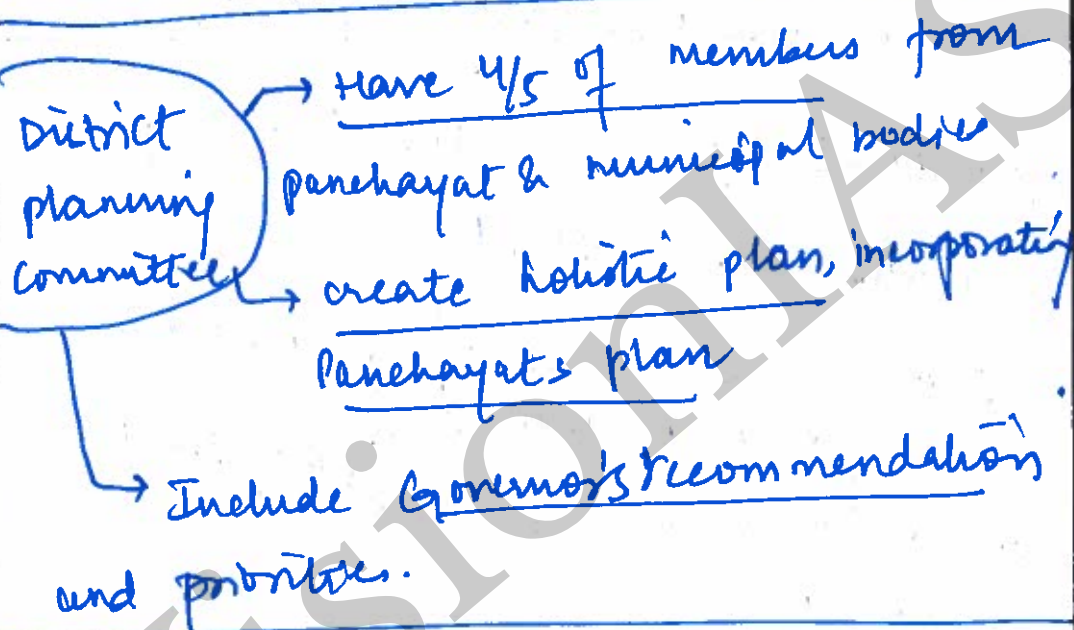 District
planning
Committee
→ Have 4/5 of members from
panchayat & municipal bodies
→ create holistic plan, incorporating
Panchayats plan
→ Include Governor's recommendations
and priorities.
VisionIAS